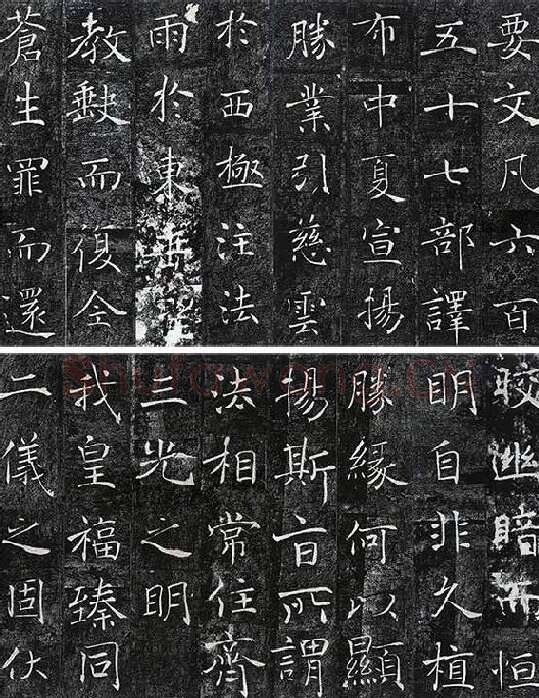 要文凡六百
五十七部譯
布中夏宣揚
勝業引慈雲
於西極注法
雨於東垂聖
教缺而復全
蒼生罪而還
皎幽暗而恒
明自非久植
勝緣何以顯
揚斯旨所謂
法相常住齊
三光之明
我皇福臻同
二儀之固伏